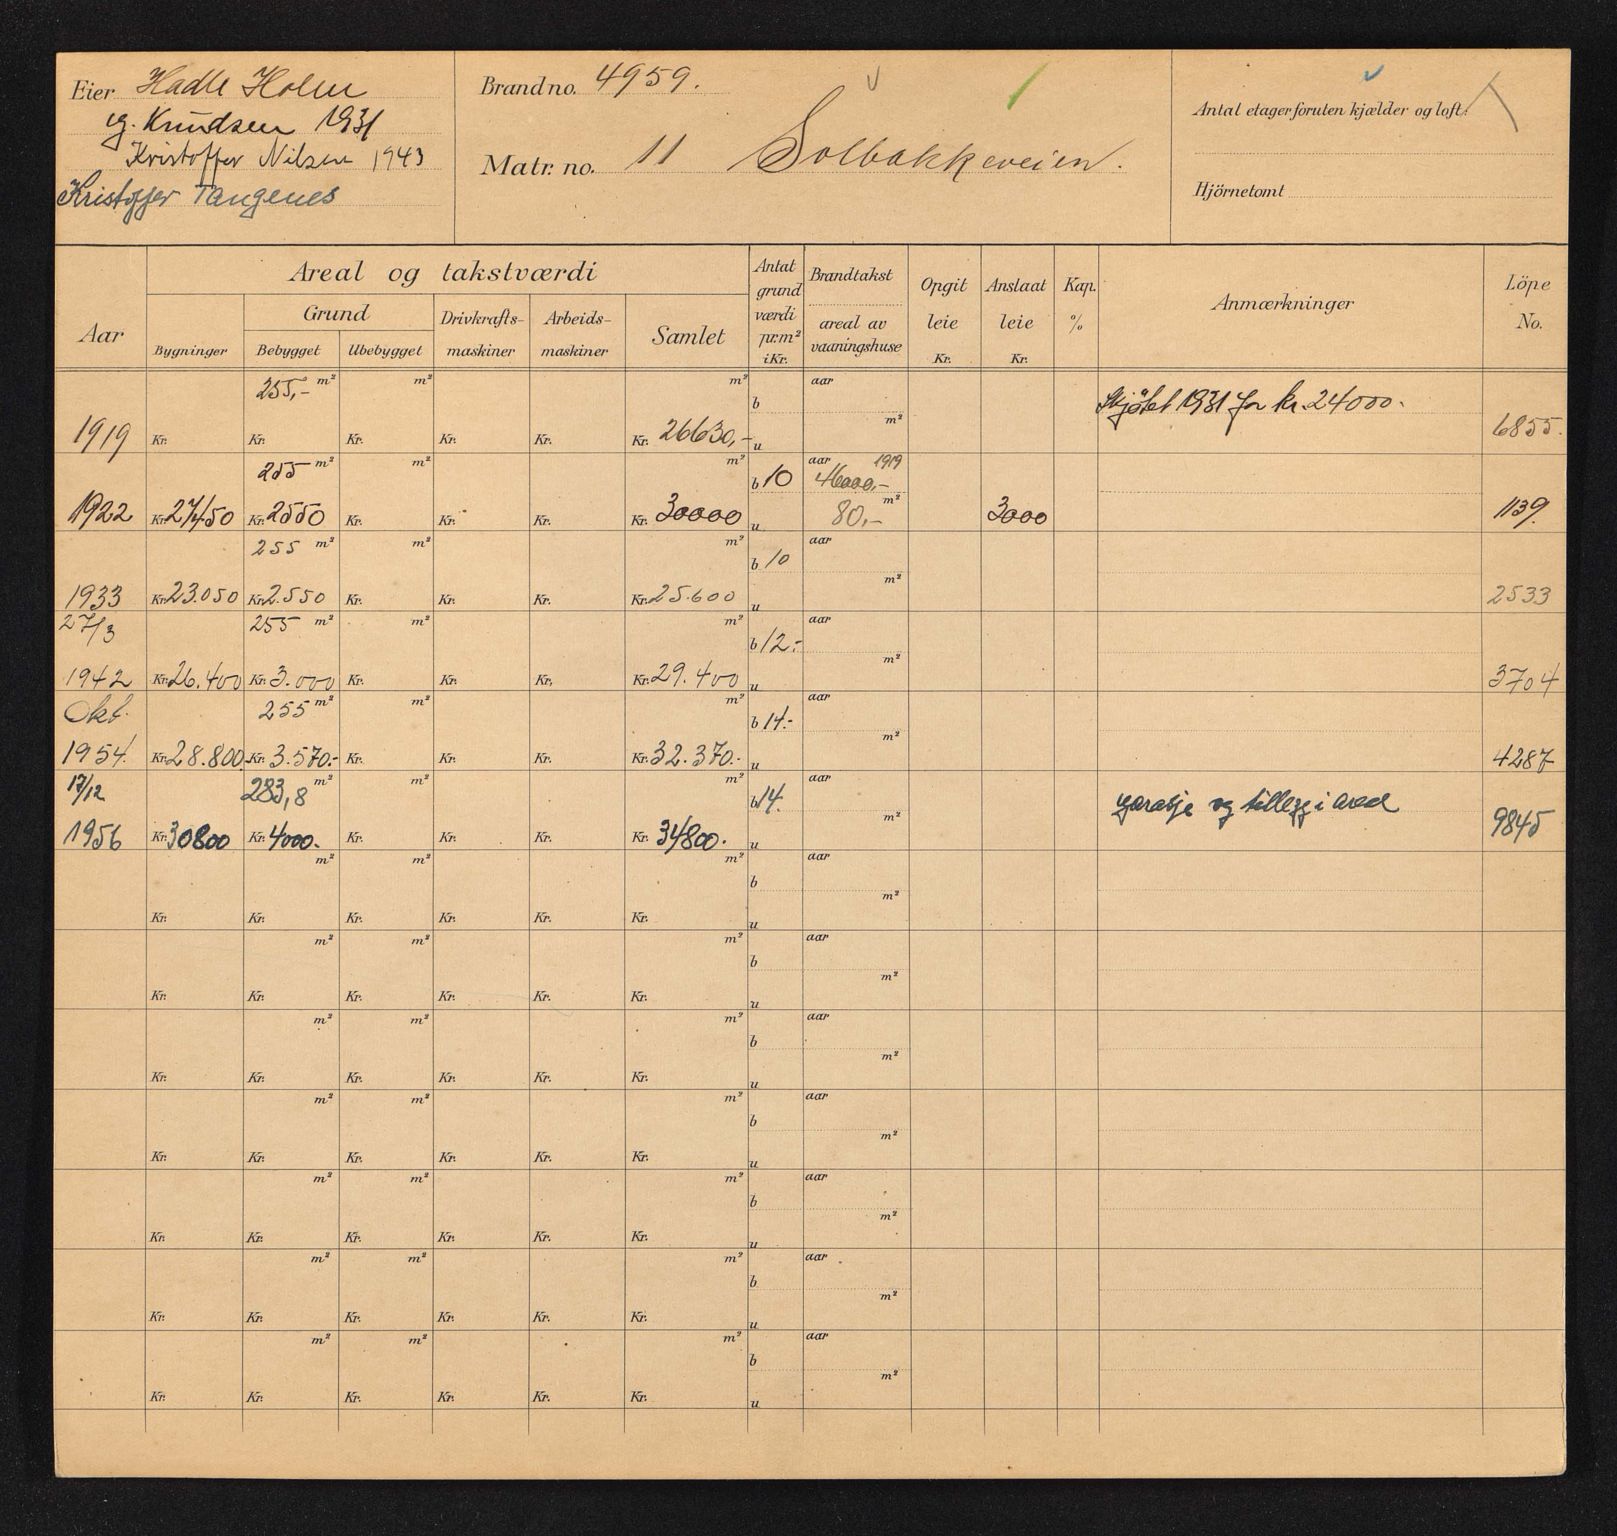 Eier Hadle Holm
Knudsen 1931
Kristoffer Nilsen 1943
Kristoffer Tangenes
Brand no. 4959.
Matr. no. 11 Solbakkeveien.
Antal etager foruten kjælder og loft:
Hjörnetomt
Aar
Areal og takstværdi
Bygninger
Grund
Bebygget Ubebygget
Drivkrafts-
maskiner
Arbeids-
maskiner
Samlet
Antat
grund
værdi
pr. m²
i Kr.
Brandtakst
areal av
vaaningshuse
Opgit
leie
Kr.
Anslaat
leie
Kr.
Kap.
%
Anmærkninger
Löpe
No.
255,- m² m² m² b aar
m²
1919 Kr. Kr. Kr. Kr. Kr. Kr. 26630,- u Skjötet 1931 for kr. 24000. 6855.
255 m² m² m² b 10 aar 1919
46000,-
m²
1922 Kr. 27450 Kr. 2550 Kr. Kr. Kr. Kr. 30000 u 80,- 3000 1139.
255 m² m² m² b 10 aar
m²
1933 Kr. 23.050 Kr. 2.550 Kr. Kr. Kr. Kr. 25.600 u 2533
27/3 255 m² m² m² b 12.- aar
m²
1942 Kr. 26.400 Kr. 3.000 Kr. Kr. Kr. Kr. 29.400 u 3704
Okt. 255 m² m² m² b 14.- aar
m²
1954. Kr. 28.800.- Kr. 3.570.- Kr. Kr. Kr. Kr. 32.370.- u 4287
17/12 283,8 m² m² m² b 14. aar
m²
1956 Kr. 30800 Kr. 4000.- Kr. Kr. Kr. Kr. 34800. u garasje og tillegg i areal 9845
m² m² m² b aar
m²
Kr. Kr. Kr. Kr. Kr. Kr. u
m² m² m² b aar
m²
Kr. Kr. Kr. Kr. Kr. Kr. u
m² m² m² b aar
m²
Kr. Kr. Kr. Kr. Kr. Kr. u
m² m² m² b aar
m²
Kr. Kr. Kr. Kr. Kr. Kr. u
m² m² m² b aar
m²
Kr. Kr. Kr. Kr. Kr. Kr. u
m² m² m² b aar
m²
Kr. Kr. Kr. Kr. Kr. Kr. u
m² m² m² b aar
m²
Kr. Kr. Kr. Kr. Kr. Kr. u